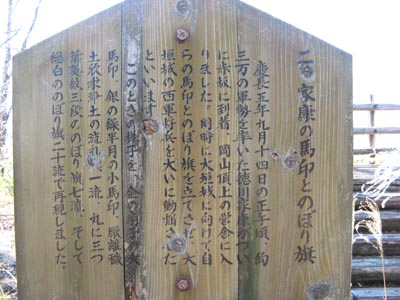 二、家康の馬印とのぼり旗
慶長五年九月十四日の正午頃、約
三万の軍勢を率いた徳川家康がつい
に赤坂に到着、岡山頂上の営舎に入
りました。同時に大垣城に向けて自
らの馬印とのぼり旗を立てさせ、大
垣城の西軍将兵を大いに動揺させた
といいます。
このときの様子を、金の扇子の大
馬印、銀の繰半月の小馬印、厭離穢
土欣求浄土の流れ旗一流、丸に三つ
葉葵紋三段ののぼり旗七流、そして
総白ののぼり旗二十流で再現しました。